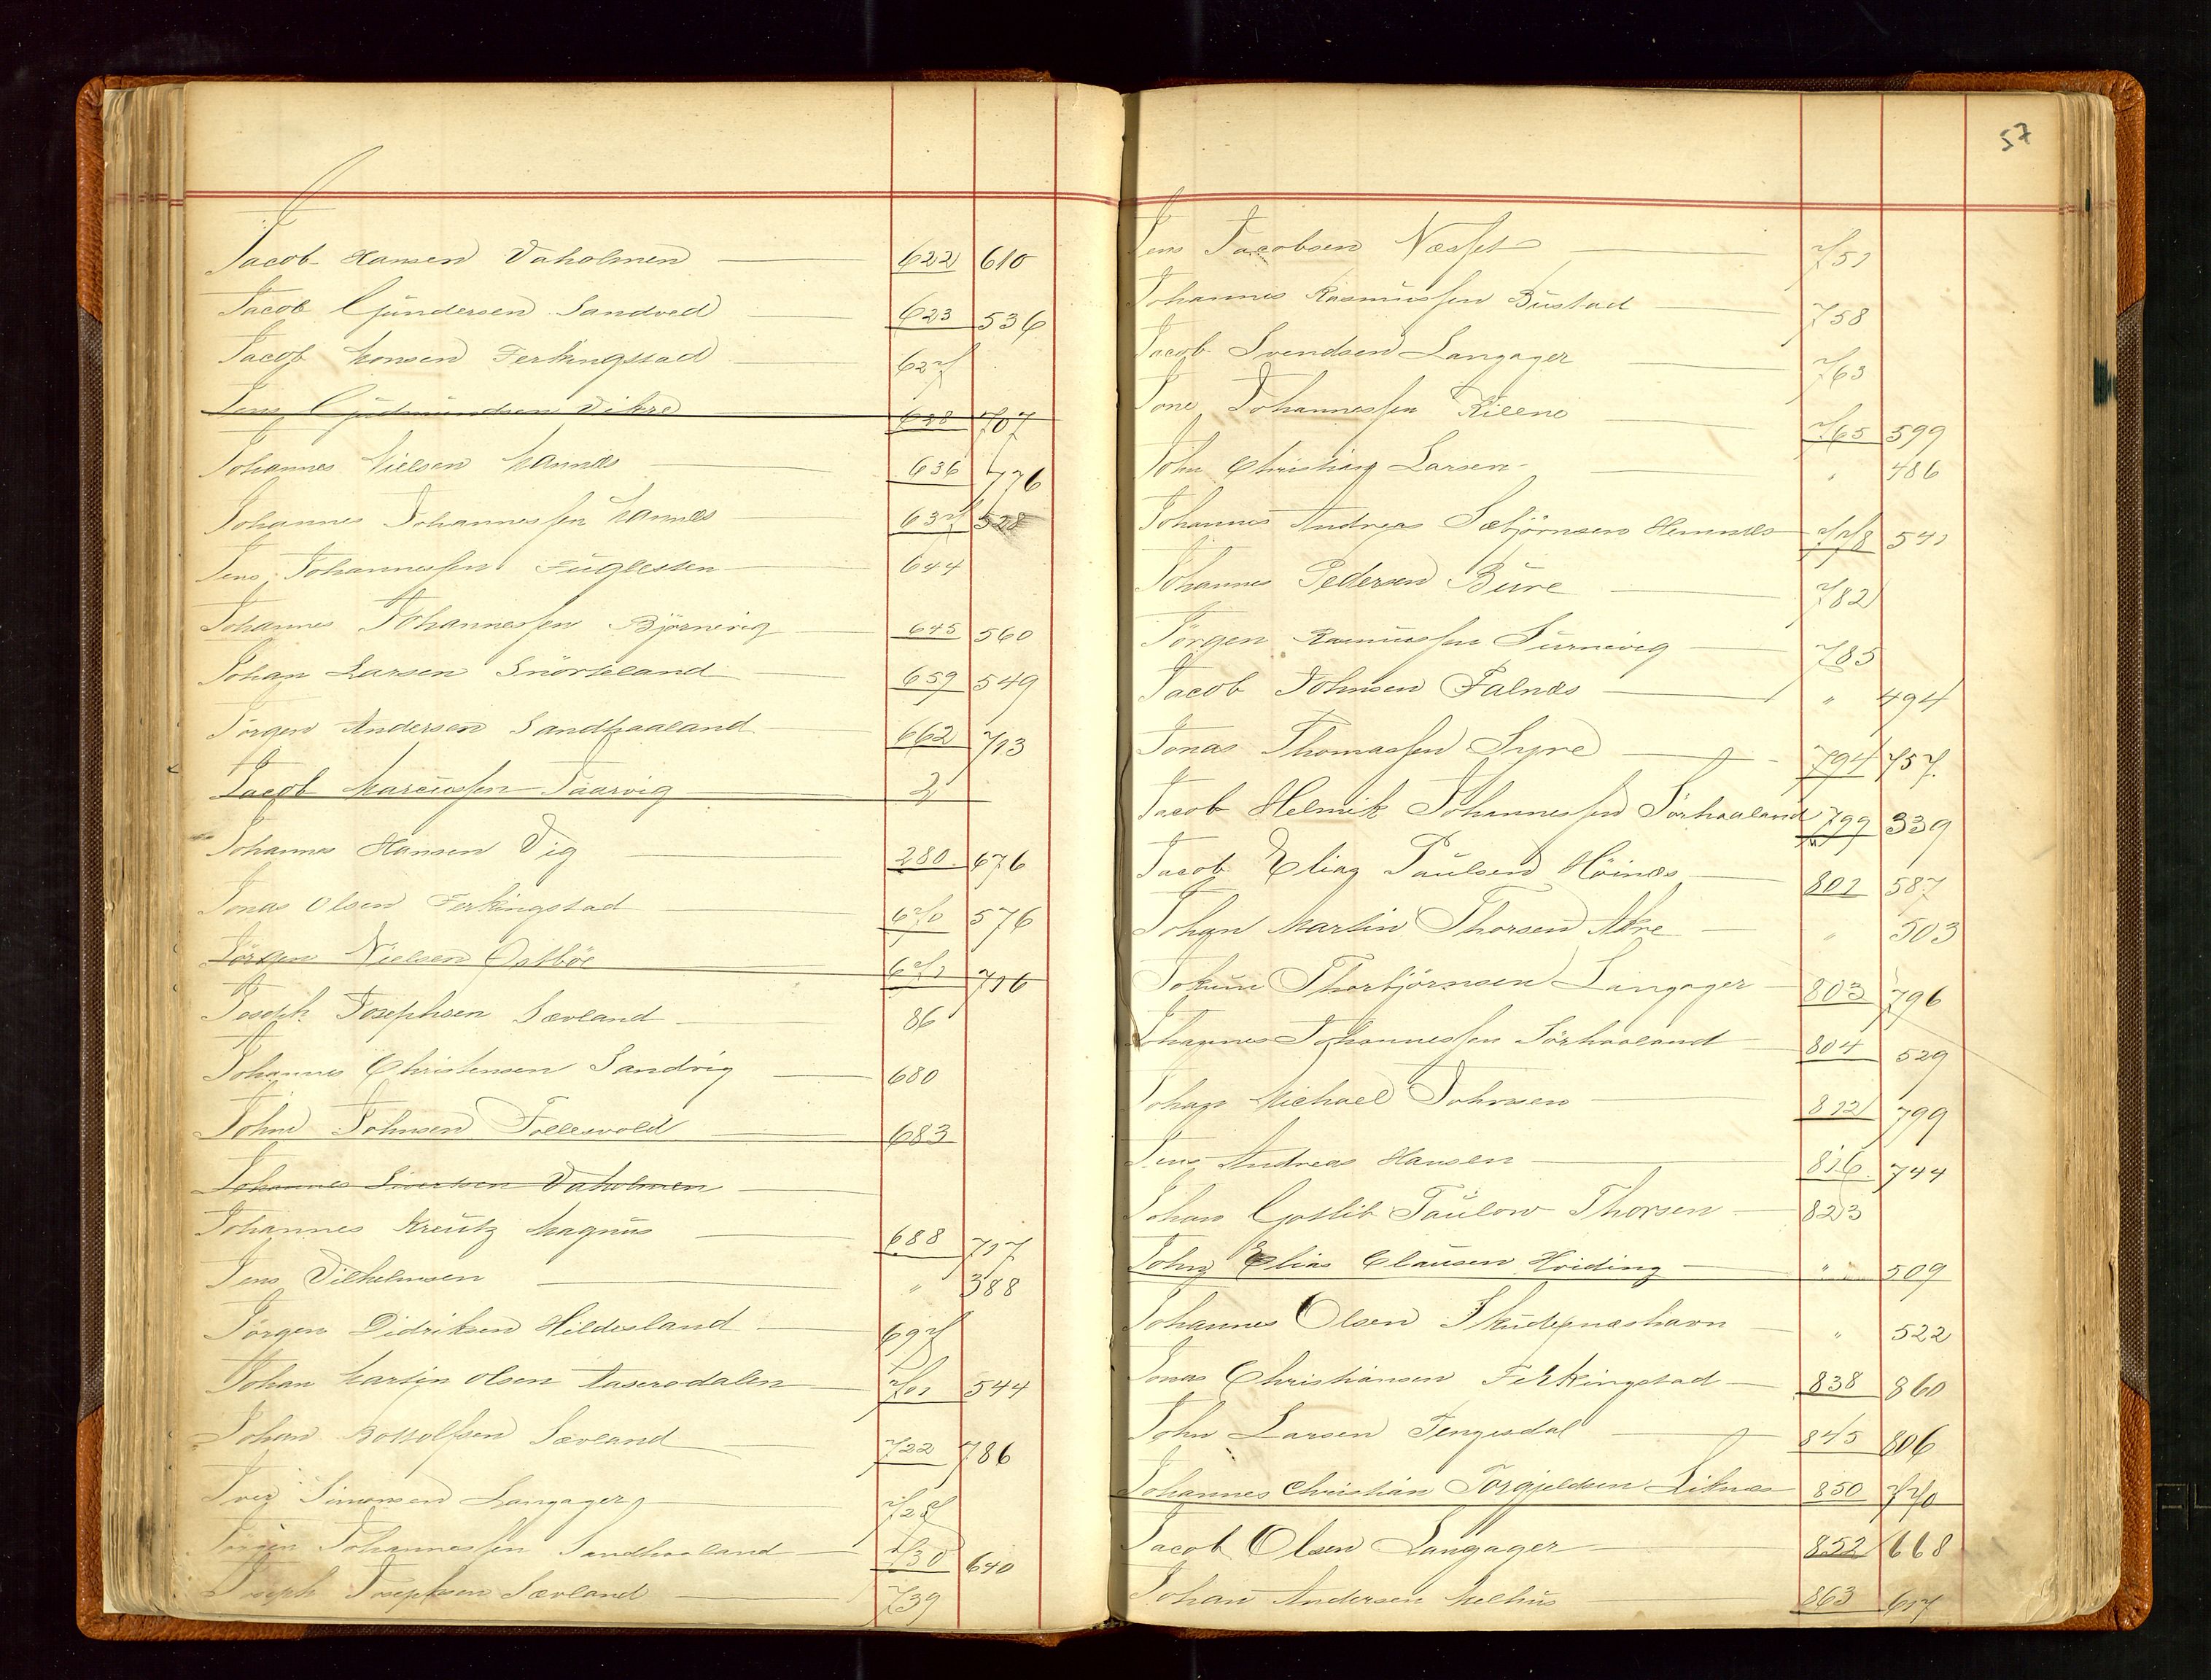 Jacob Hansen Vaholmen 622 610
Jacob Gundersen Sandved 623 536
Jacob Monsen Ferkingstad 627
Jens Gudmundsen Vikre 628 707
Johannes Nielsen Mannes 636 776
Johannes Johannessen Mannes 637 528
Jens Johannessen Fuglesten 644
Johannes Johannessen Björnevig 645 560
Johan Larsen Snörteland 659 549
Jörgen Andersen Sandhaaland 662 713
Jacob Marcussen Taarvig 2
Johannes Hansen Vig 280 676
Jonas Olsen Ferkingstad 670 576
Jörgen Nielsen Östbøe 671 716
Joseph Josephsen Sævland 86
Johannes Christensen Sandvig 680
Johne Johnsen Follesvold 683
Johannes Sivertsen Vaholmen
Johannes Kreutz Magnus 688 717
Jens Vilhelmsen " 388
Jörgen Didriksen Hildesland 697
Johan Martin Olsen Aaserodalen 701 544
Johan Bottolfsen Sævland 722 786
Iver Simonsen Langager 727
Jörgen Johannessen Sandhaaland 730 640
Joseph Josephsen Sævland 739
57
Jens Jacobsen Næsset 751
Johannes Rasmussen Bustad 758
Jacob Svendsen Langager 763
Jone Johannessen Kilene 765 599
John Christian Larsen " 486
Johannes Andreas Sæbjörnsen Hemnes 778 541
Johannes Pedersen Bure 782
Jörgen Rasmussen Surnevig 785
Jacob Johnsen Falnæs " 494
Jonas Thomassen Syre 794 757
Jacob Helmik Johannessen Sörhaaland 799 339
Jacob Elias Paulsen Höinæs 801 587
Johan Martin Thorsen Akre " 503
Jokum Thorbjörnsen Langager 803 796
Johannes Johannessen Sörhaaland 804 529
Johan Michael Johnsen 812 799
Jens Andreas Hansen 816 744
Johan Gotlib Paulow Thorsen 823
John Elias Clausen Hviding " 509
Johannes Olsen Skudenæshavn " 522
Jonas Christiansen Ferkingstad 838 860
John Larsen Tengesdal 845 806
Johannes Christian Torgjeldsen Liknæs 850 770
Jacob Olsen Langager 852 668
Johan Andersen Melhus 863 617